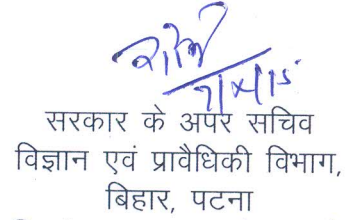 सरकार के अपर सचिव
विज्ञान एवं प्रावैधिकी विभाग,
बिहार, पटना